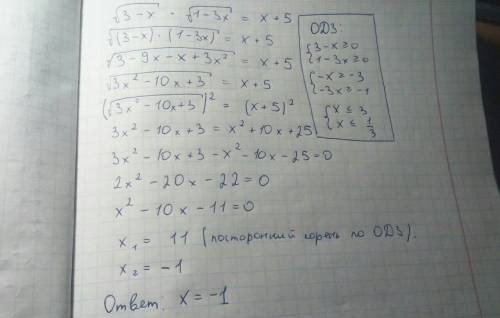 √(3-x) · √(1-3x) = x+5
√((3-x)·(1-3x)) = x+5
√(3-9x-x+3x²) = x+5
√(3x²-10x+3) = x+5
(√(3x²-10x+3))² = (x+5)²
3x²-10x+3 = x²+10x+25
3x²-10x+3-x²-10x-25=0
2x²-20x-22=0
x²-10x-11=0
x₁ = 11 (посторонний корень по ОДЗ).
x₂ = -1
Ответ. x=-1
ОДЗ:
{3-x≥0
{1-3x≥0
{-x≥-3
{-3x≥-1
{x≤3
{x≤1/3